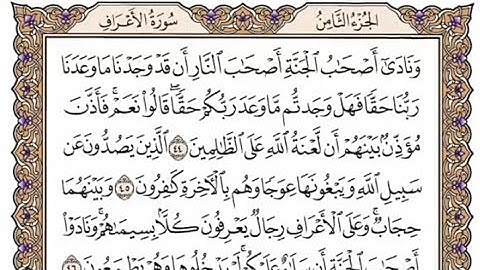 سُورَةُ الأَعْرَافِ
الجُزْءُ الثَّامِنُ
وَنَادَىٰٓ أَصْحَٰبُ ٱلْجَنَّةِ أَصْحَٰبَ ٱلنَّارِ أَن قَدْ وَجَدْنَا مَا وَعَدَنَا
رَبُّنَا حَقًّا فَهَلْ وَجَدتُّم مَّا وَعَدَ رَبُّكُمْ حَقًّا ۖ قَالُوا۟ نَعَمْ ۚ فَأَذَّنَ
مُؤَذِّنٌۢ بَيْنَهُمْ أَن لَّعْنَةُ ٱللَّهِ عَلَى ٱلظَّٰلِمِينَ ٤٤ ٱلَّذِينَ يَصُدُّونَ عَن
سَبِيلِ ٱللَّهِ وَيَبْغُونَهَا عِوَجًا وَهُم بِٱلْءَاخِرَةِ كَٰفِرُونَ ٤٥ وَبَيْنَهُمَا
حِجَابٌ ۚ وَعَلَى ٱلْأَعْرَافِ رِجَالٌ يَعْرِفُونَ كُلًّۢا بِسِيمَىٰهُمْ ۚ وَنَادَوْا۟
أَصْحَٰبَ ٱلْجَنَّةِ أَن سَلَٰمٌ عَلَيْكُمْ ۚ لَمْ يَدْخُلُوهَا وَهُمْ يَطْمَعُونَ ٤٦